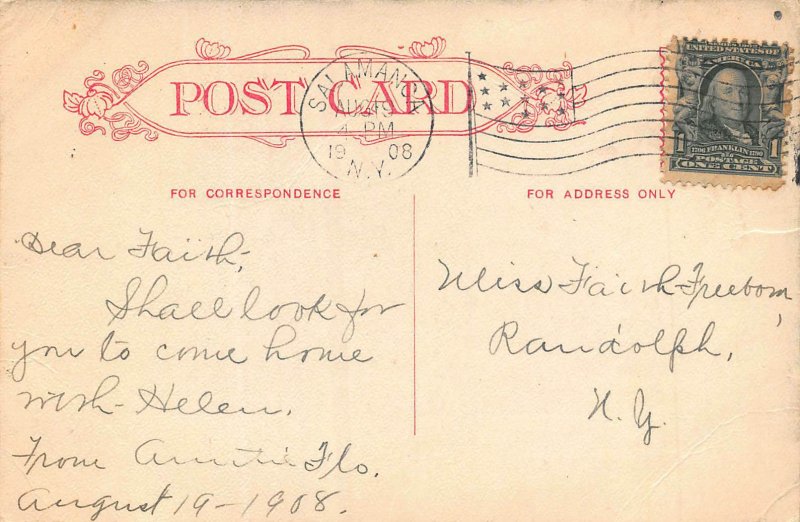 POST CARD
SALAMANCA
AUG 19
4 PM
19 08
N.Y.
UNITED STATES OF
AMERICA
1 1
1706 FRANKLIN 1790
POSTAGE
ONE CENT
FOR CORRESPONDENCE
FOR ADDRESS ONLY
Dear Faith,
Shall look for
you to come home
with Helen.
From Auntie Flo.
August 19-1908.
Miss Faith Freeborn,
Randolph,
N.Y.